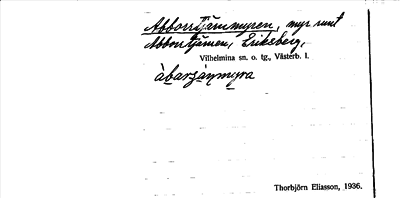 Abborrtjärnmyren, myr runt
Abborrtjärnen, Eriksberg,
Vilhelmina sn. o. tg., Västerb. l.
àbarʒáṇmyra
Thorbjörn Eliasson, 1936.